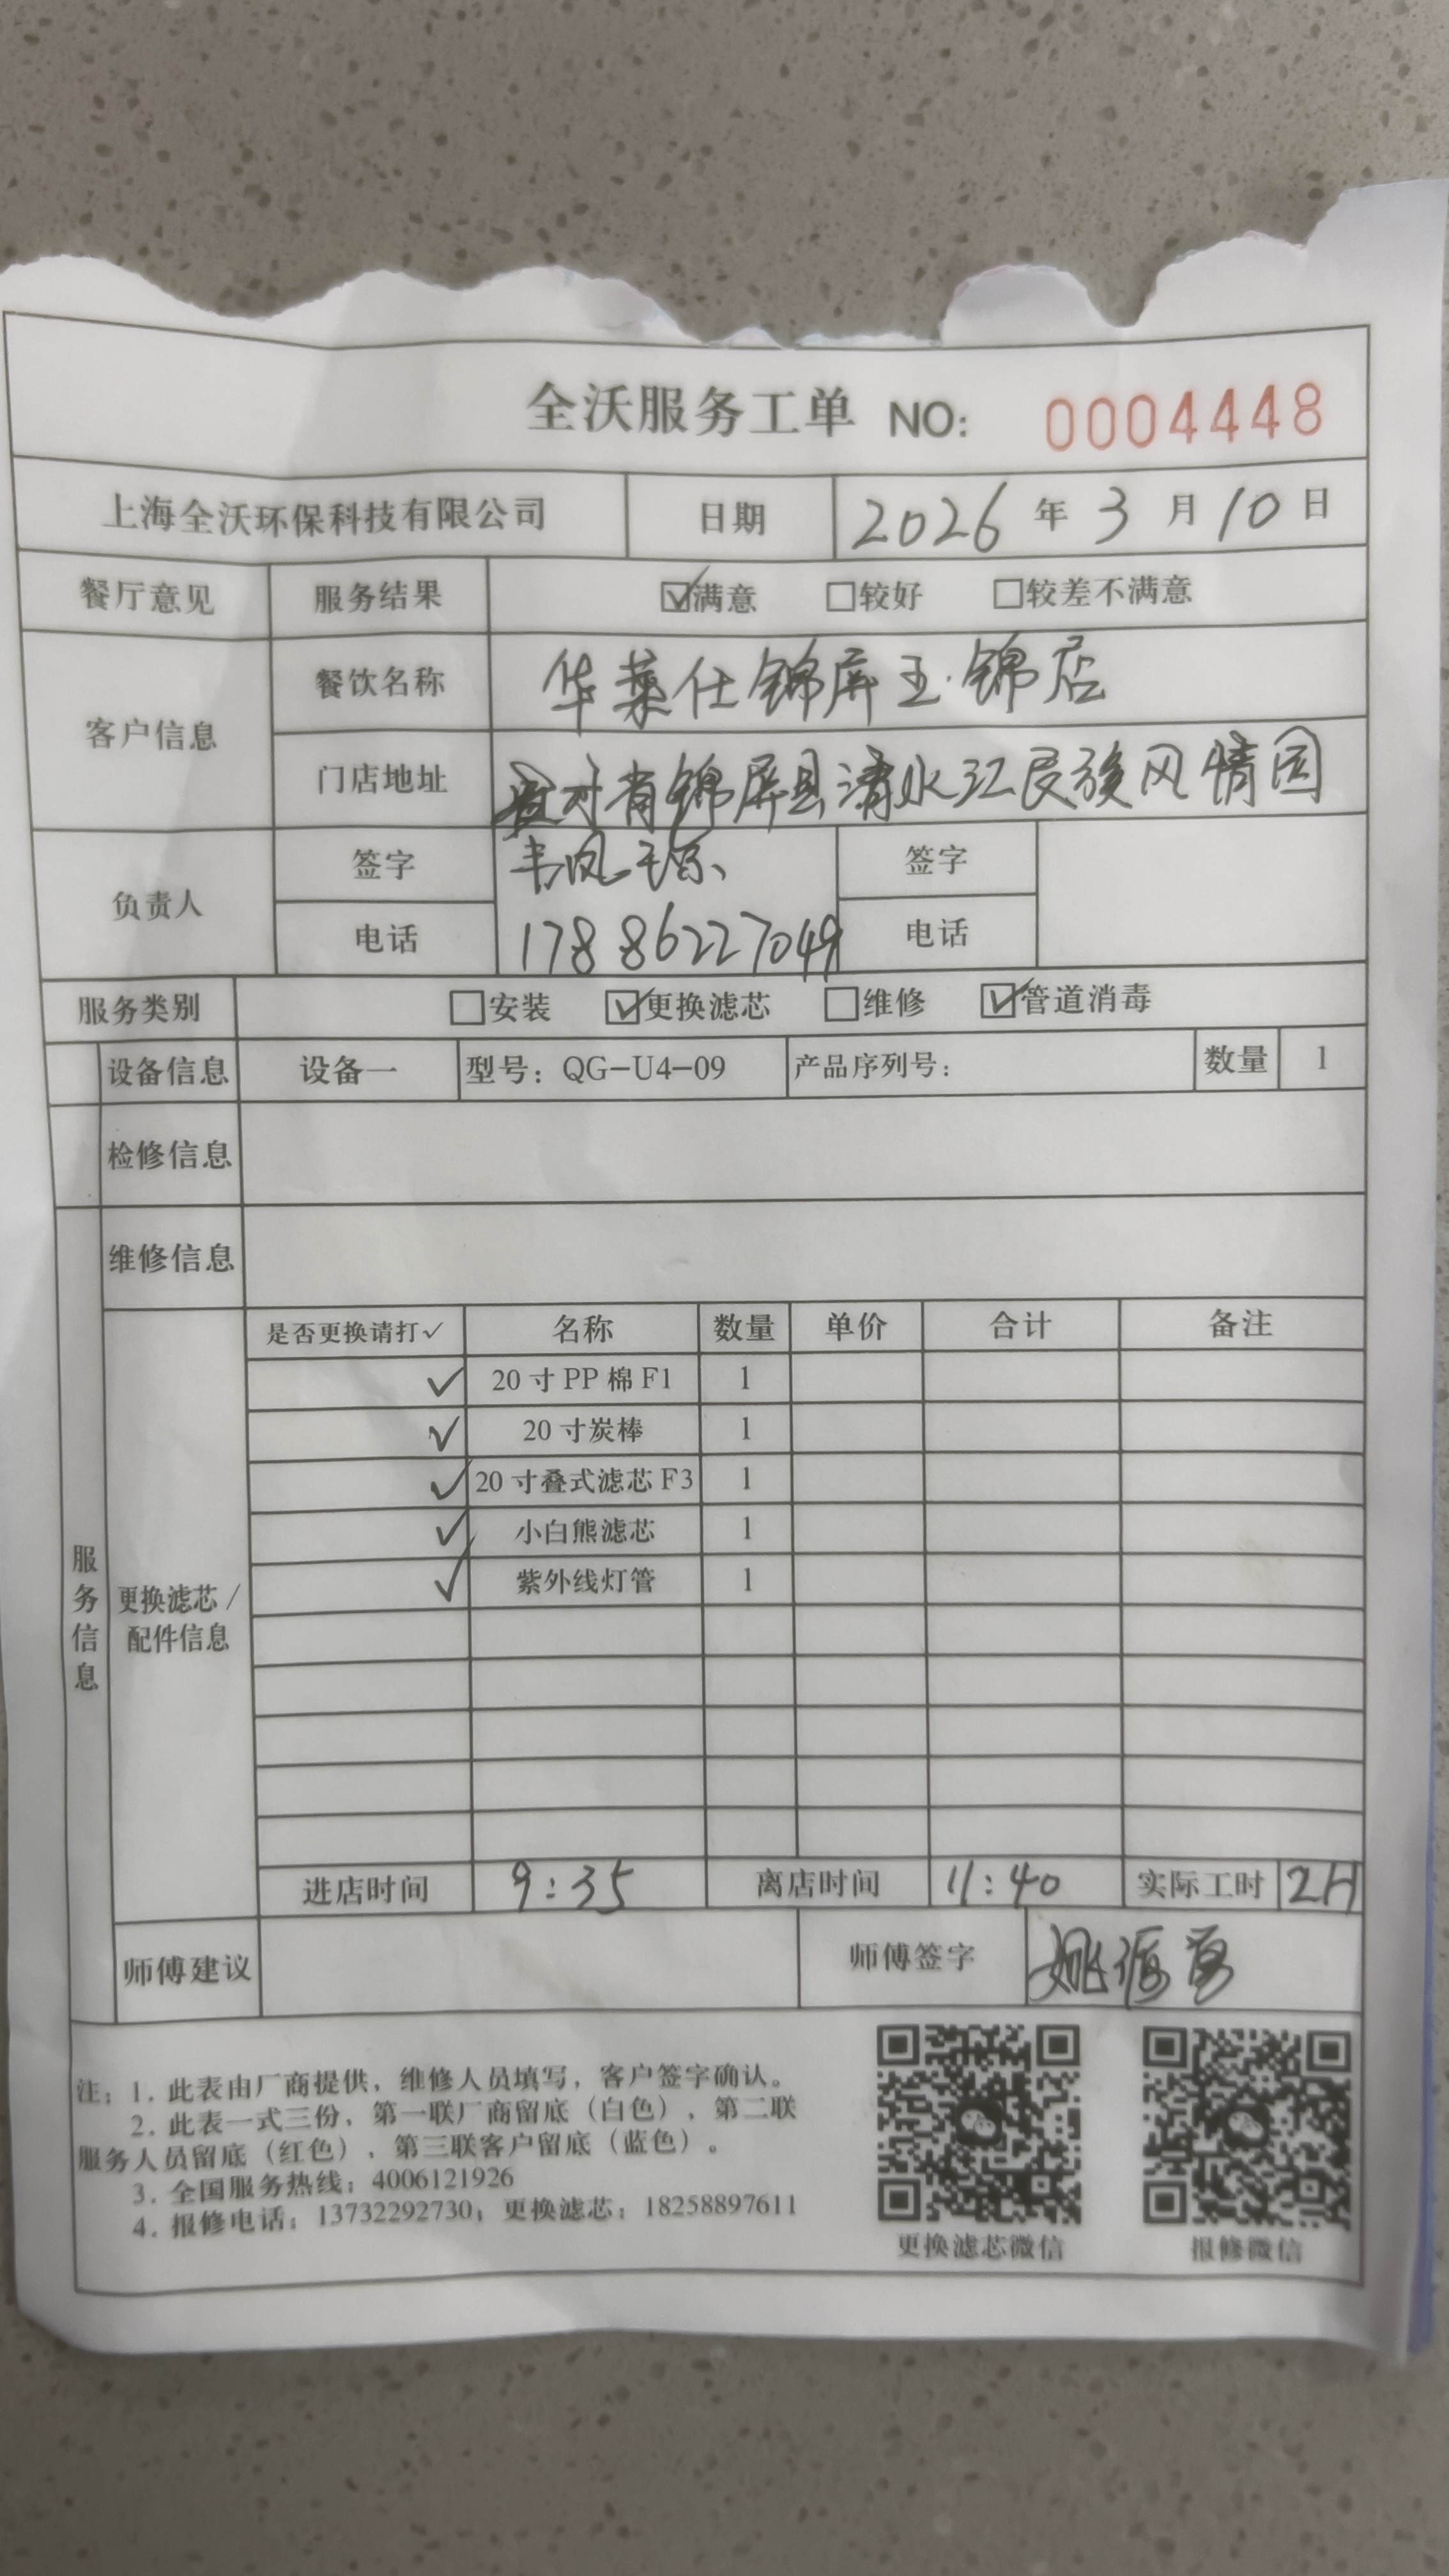 全沃服务工单 NO: 0004448
上海全沃环保科技有限公司 日期 2026 年 3 月 10 日
餐厅意见 服务结果 ☑满意 □较好 □较差不满意
客户信息 餐饮名称 华莱仕锦屏王·锦店
门店地址 省锦屏县清水江民族风情园
负责人 签字 韦凤琼 签字
电话 17886227049 电话
服务类别 □安装 ☑更换滤芯 □维修 ☑管道消毒
设备信息 设备一 型号：QG-U4-09 产品序列号： 数量 1
检修信息
维修信息
服务信息
更换滤芯/配件信息
是否更换请打✓ 名称 数量 单价 合计 备注
✓ 20寸PP棉F1 1
✓ 20寸炭棒 1
✓ 20寸叠式滤芯F3 1
✓ 小白熊滤芯 1
✓ 紫外线灯管 1
进店时间 9:35 离店时间 11:40 实际工时 2H
师傅建议 师傅签字 姚
注：1. 此表由厂商提供，维修人员填写，客户签字确认。
2. 此表一式三份，第一联厂商留底（白色），第二联
服务人员留底（红色），第三联客户留底（蓝色）。
3. 全国服务热线：4006121926
4. 报修电话：13732292730；更换滤芯：18258897611
更换滤芯微信 报修微信